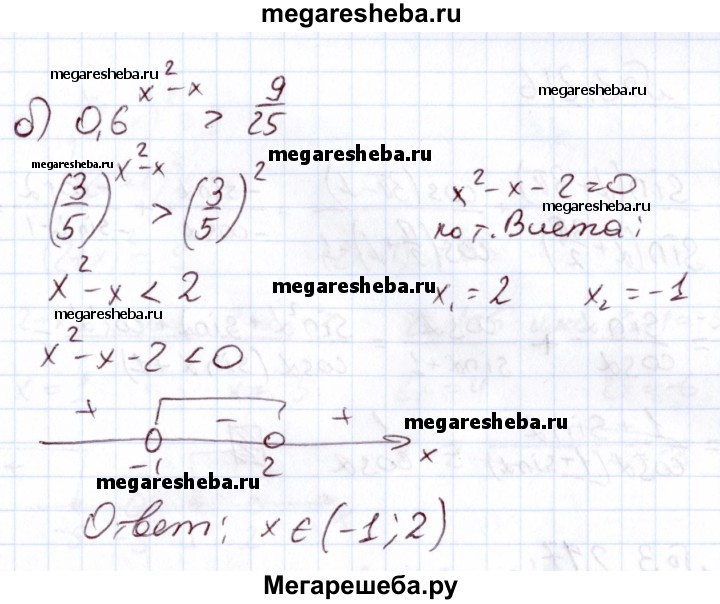 megaresheba.ru
megaresheba.ru
б) 0,6^(x²-x) > 9/25
megaresheba.ru
megaresheba.ru
megaresheba.ru
(3/5)^(x²-x) > (3/5)²
x²-x-2=0
megaresheba.ru
по т. Виета:
x²-x<2
megaresheba.ru
x₁=2 x₂=-1
megaresheba.ru
x²-x-2<0
+ - +
megaresheba.ru
-1 2 x
megaresheba.ru
Ответ: x∈(-1;2)
Мегарешеба.ру